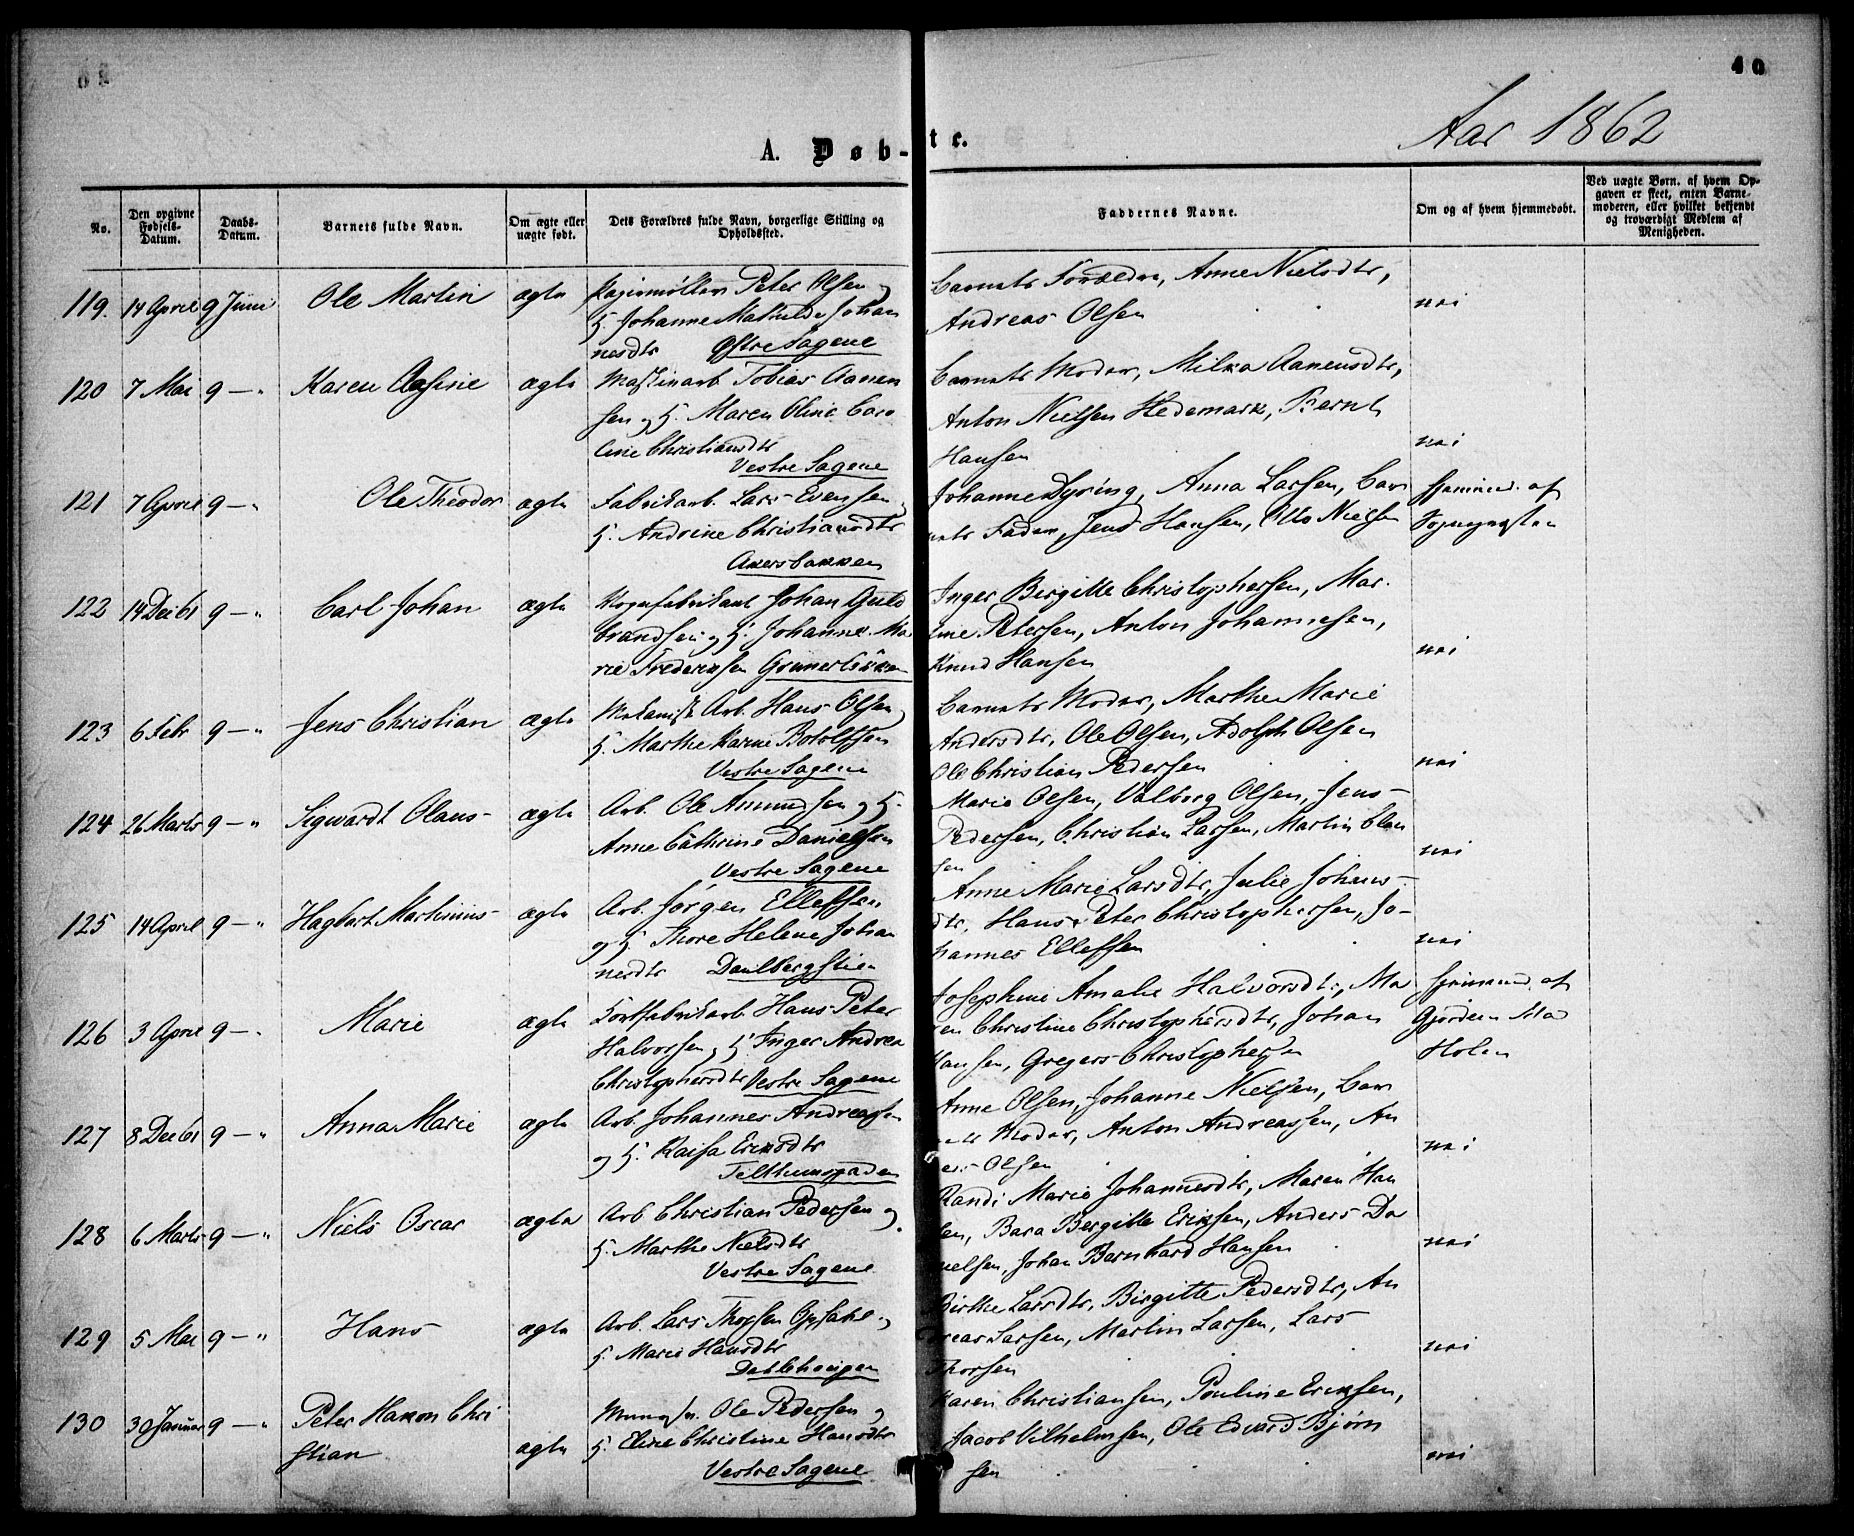 40
Aar 1862
A. Døb-te.
No.
Den opgivne Fødsels-Datum.
Daabs-Datum.
Barnets fulde Navn.
Om ægte eller uægte født.
Dets Forældres fulde Navn, borgerlige Stilling og Opholdssted.
Faddernes Navne.
Om og af hvem hjemmedøbt.
Ved uægte Børn, af hvem Op-
gaven er skeet, enten Barne-
moderen, eller hvilket bekjendt
og troværdigt Medlem af
Menigheden.
119. 14 April 9 Juni Ole Martin ægte Papirmøller Peter Olsen og
H. Johanne Mathilde Johan
nesdtr Østre Sagene
Barnets Forældre, Anne Nielsdtr,
Andreas Olsen
nei
120 7 Mai 9 — " Karen Aasine ægte Maskinarb Tobias Aanen
sen og H. Maren Oline Caro
line Christiansdtr
Vestre Sagene
Barnets Moder, Milka Aanensdtr,
Anton Nielsen Hedemark, Bernt
Hansen
nei
121 7 April 9 — " Ole Theodor ægte Fabrikarb. Lars Evensen,
H. Andrine Christiansdtr
Akersbakken
Johanne Dyring, Anna Larsen, Bar
nets Fader, Jens Hansen, Otto Nielsen
hjemmed. af
Sognepresten
122 14 Dec 61 9 — " Carl Johan ægte Johan Guld
brandsen og H. Johanne Ma
rie Frederiksen Grünerløkken
Inger Birgitte Christophersen, Mar.
ine Petersen, Anton Johannesen,
Knud Hansen
nei
123 6 Febr 9 — " Jens Christian ægte Mekanisk Arb. Hans Olsen,
H. Marthe Karine Botolfsen
Vestre Sagene
Barnets Moder, Marthe Marie
Andersdtr, Ole Olsen, Adolph Olsen
Ole Christian Pedersen
nei
124 26 Marts 9 — " Sigwardt Olaus ægte Arb. Ole Amundsen og H.
Anne Cathrine Danielsen
Vestre Sagene
Marie Olsen, Valborg Olsen, Jens
Pedersen, Christian Larsen, Martin Clau
sen
nei
125 14 April 9 — " Hagbart Martinius ægte Arb. Jørgen Ellefsen
og H. Thore Helene Johan
nesdtr Dahlbergstien
Anne Marie Larsdtr, Julie Johans-
dtr, Hans Peter Christophersen, Jo-
hannes Ellefsen
nei
126 3 April 9 — " Marie ægte Hans Peter
Halvorsen, H. Inger Andrea
Christophersdtr Vestre Sagene
Josephine Amalie Halvorsdtr, Ma
ren Christine Christophersdtr, Johan
Hansen, Gregers Christophersen
hjemmed. af
Holen
127 8 Dec 61 9 — " Anna Marie ægte Arb. Johannes Andreassen
og H. Kaisa Eriksdtr
Telthusgaden
Anne Olsen, Johanne Nielsen, Bar
nets Moder, Anton Andreassen, An
ders Olsen
nei
128 6 Marts 9 — " Niels Oscar ægte Arb Christian Pedersen og
H. Marthe Nielsdtr
Vestre Sagene
Randi Marie Johannesdtr, Maren Han
sen, Bara Bergitte Eriksen, Anders Da
nielsen, Johan Bernhard Hansen
nei
129 5 Mai 9 — " Hans ægte Arb. Lars Thorsen Opsahl og
H. Marie Hansdtr
Dahlehougen
Birthe Larsdtr, Birgitte Pedersdtr, An
dreas Larsen, Martin Larsen, Lars
Thorsen
nei
130 30 Januar 9 — " Peter Hakon Chri
stian ægte Ole Pedersen og
H. Eline Christine Hansdtr
Vestre Sagene
Karen Christiansen, Pouline Eriksen,
Jacob Vilhelmsen, Ole Edvard Bjørn
sen
nei